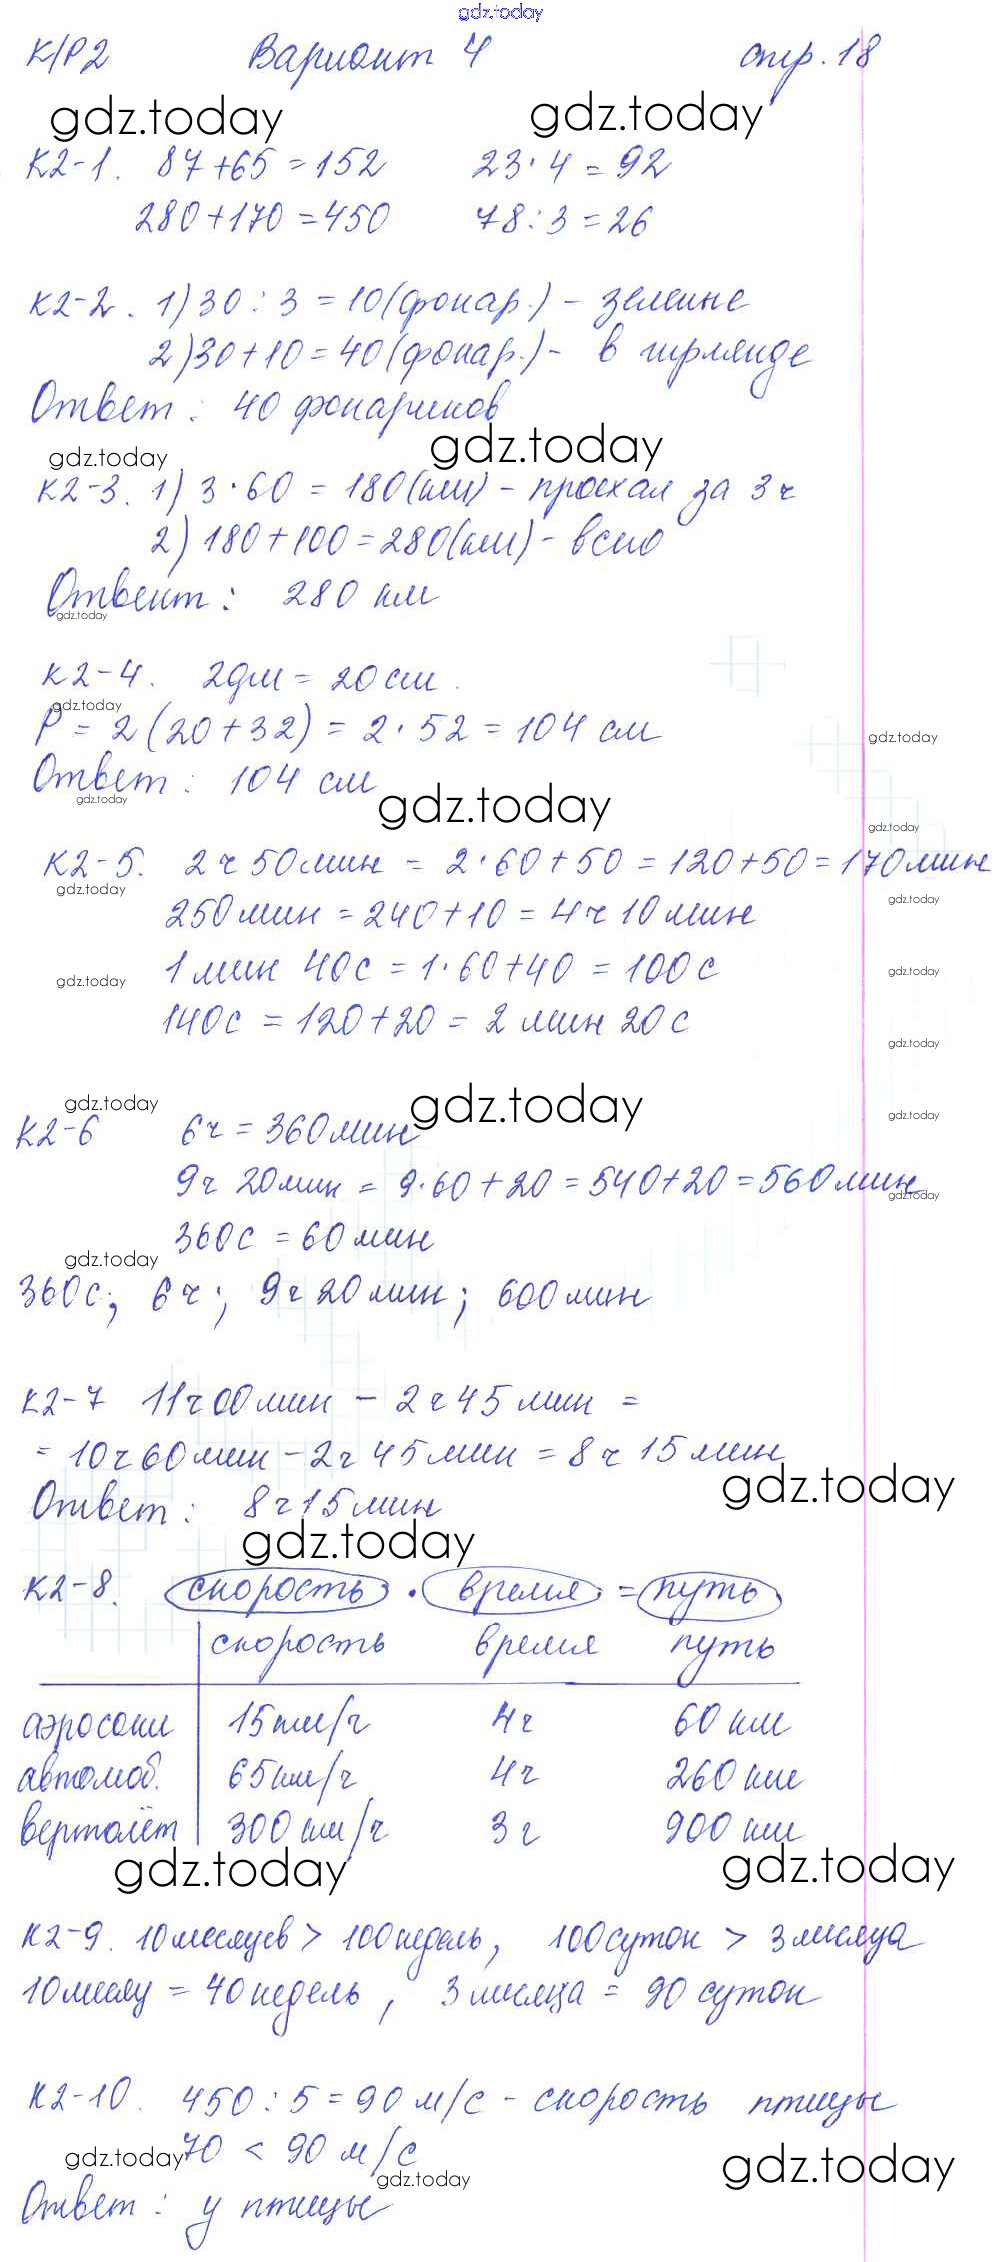 gdz.today
К/Р2 Вариант 4 стр. 18
gdz.today gdz.today
К2-1. 87+65=152 23·4=92
280+170=450 78:3=26
К2-2. 1) 30:3=10(фонар.) - зелёные
2) 30+10=40(фонар.) - в гирлянде
Ответ: 40 фонариков
gdz.today gdz.today
К2-3. 1) 3·60=180(км) - проехал за 3ч
2) 180+100=280(км) - всего
Ответ: 280 км
gdz.today
К2-4. 2дм=20см.
gdz.today
P=2(20+32)=2·52=104 см
gdz.today
Ответ: 104 см
gdz.today gdz.today
gdz.today
К2-5. 2ч 50мин = 2·60+50=120+50=170мин
gdz.today gdz.today
250мин=240+10=4ч 10мин
1мин 40с=1·60+40=100с
gdz.today gdz.today
140с=120+20=2мин 20с
gdz.today
gdz.today gdz.today gdz.today
К2-6 6ч=360мин
9ч 20мин=9·60+20=540+20=560мин
gdz.today
360с=60мин
gdz.today
360с; 6ч; 9ч 20мин; 600мин
К2-7 11ч00мин - 2ч45мин =
= 10ч60мин-2ч45мин=8ч15мин
gdz.today
Ответ: 8ч15мин
gdz.today
К2-8. скорость · время = путь
скорость время путь
аэросани 15км/ч 4ч 60км
автомоб. 65км/ч 4ч 260км
вертолёт 300км/ч 3ч 900км
gdz.today gdz.today
К2-9. 10месяцев > 100недель, 100суток > 3месяца
10месяц=40недель, 3месяца=90суток
К2-10. 450:5=90м/с - скорость птицы
70 < 90м/с
gdz.today gdz.today gdz.today
Ответ: у птицы